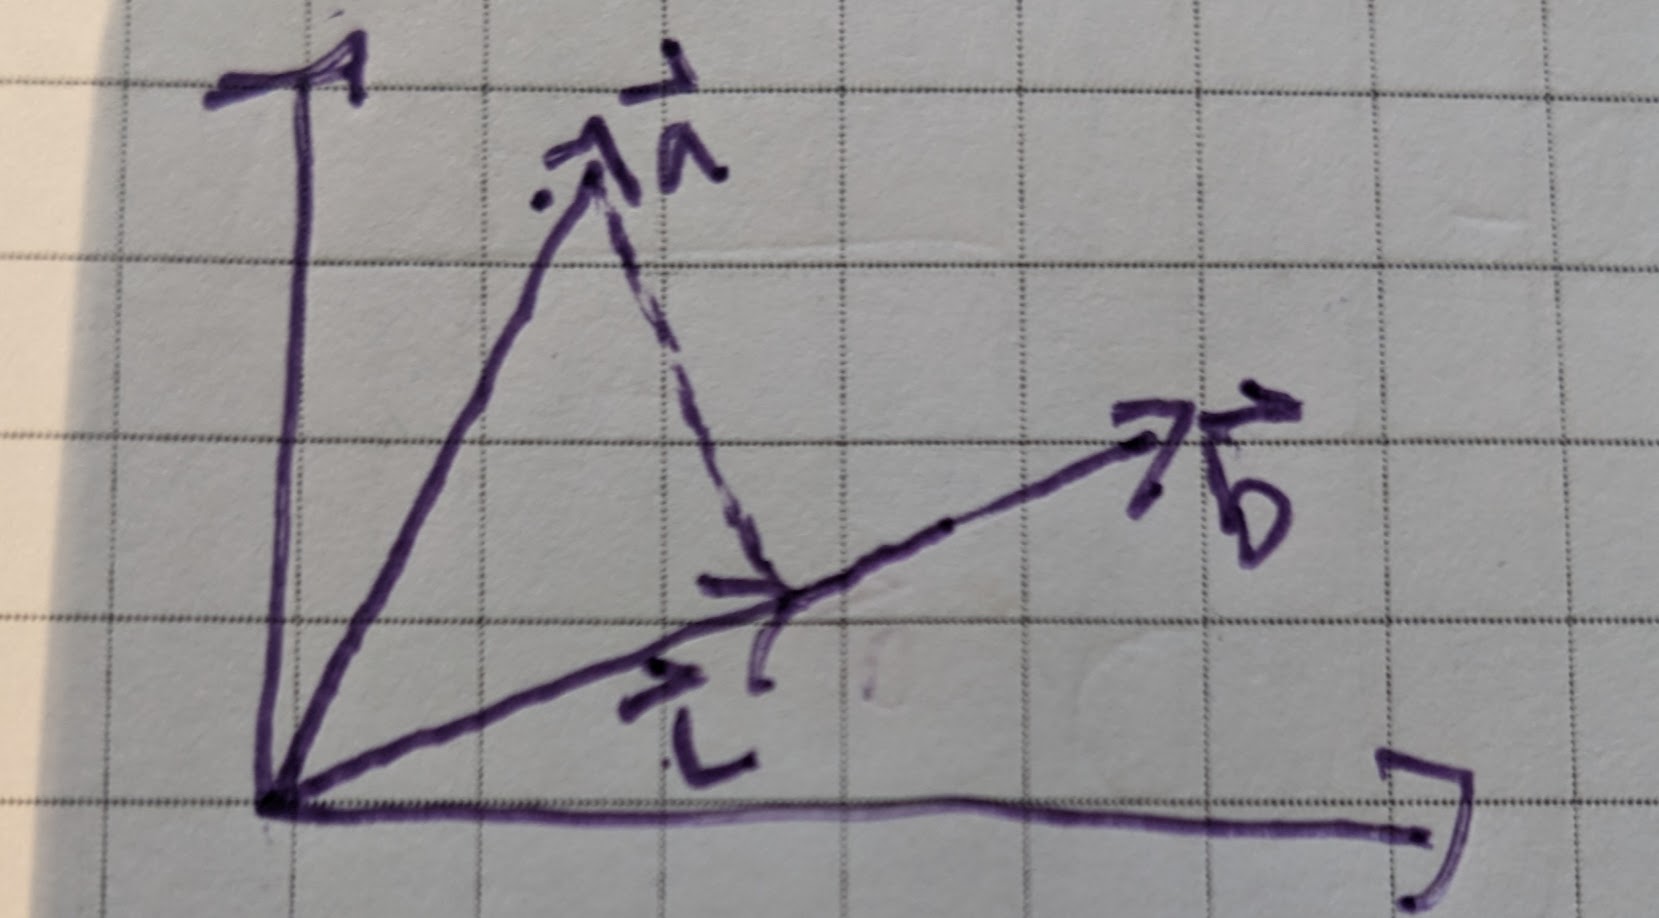 a⃗
b⃗
c⃗